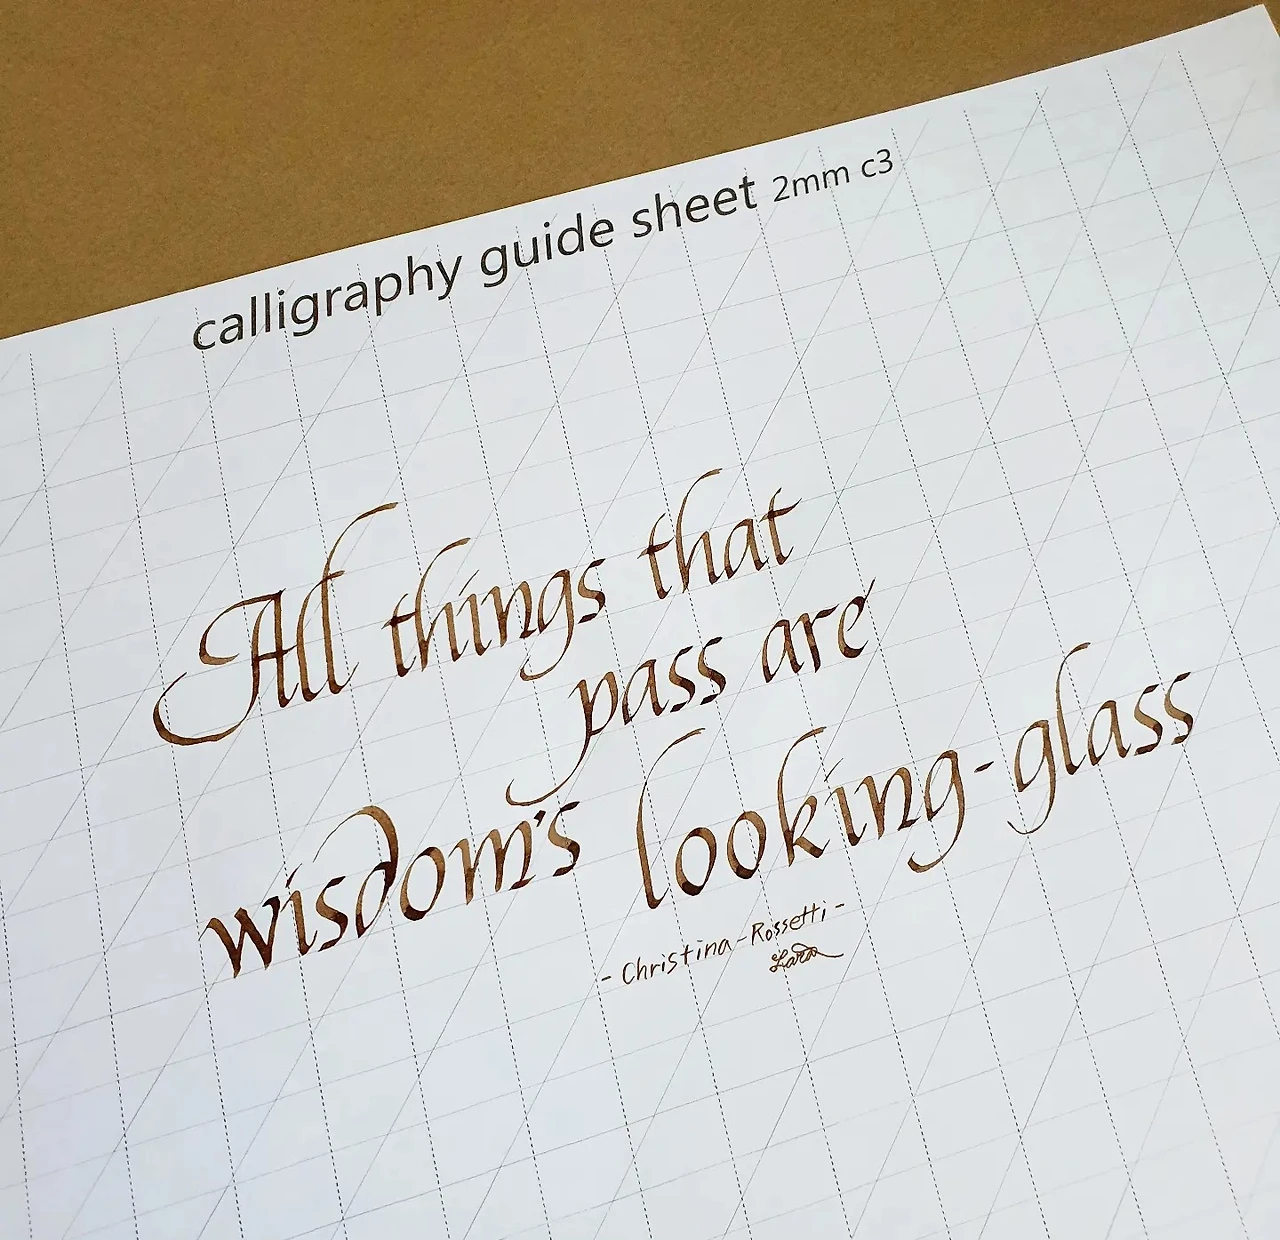 calligraphy guide sheet 2mm c3
All things that
pass are
wisdom's looking-glass
- Christina-Rossetti -
Lara